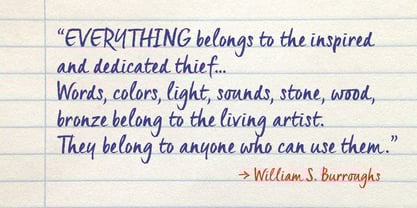 “EVERYTHING belongs to the inspired
and dedicated thief...
Words, colors, light, sounds, stone, wood,
bronze belong to the living artist.
They belong to anyone who can use them.”
→ William S. Burroughs